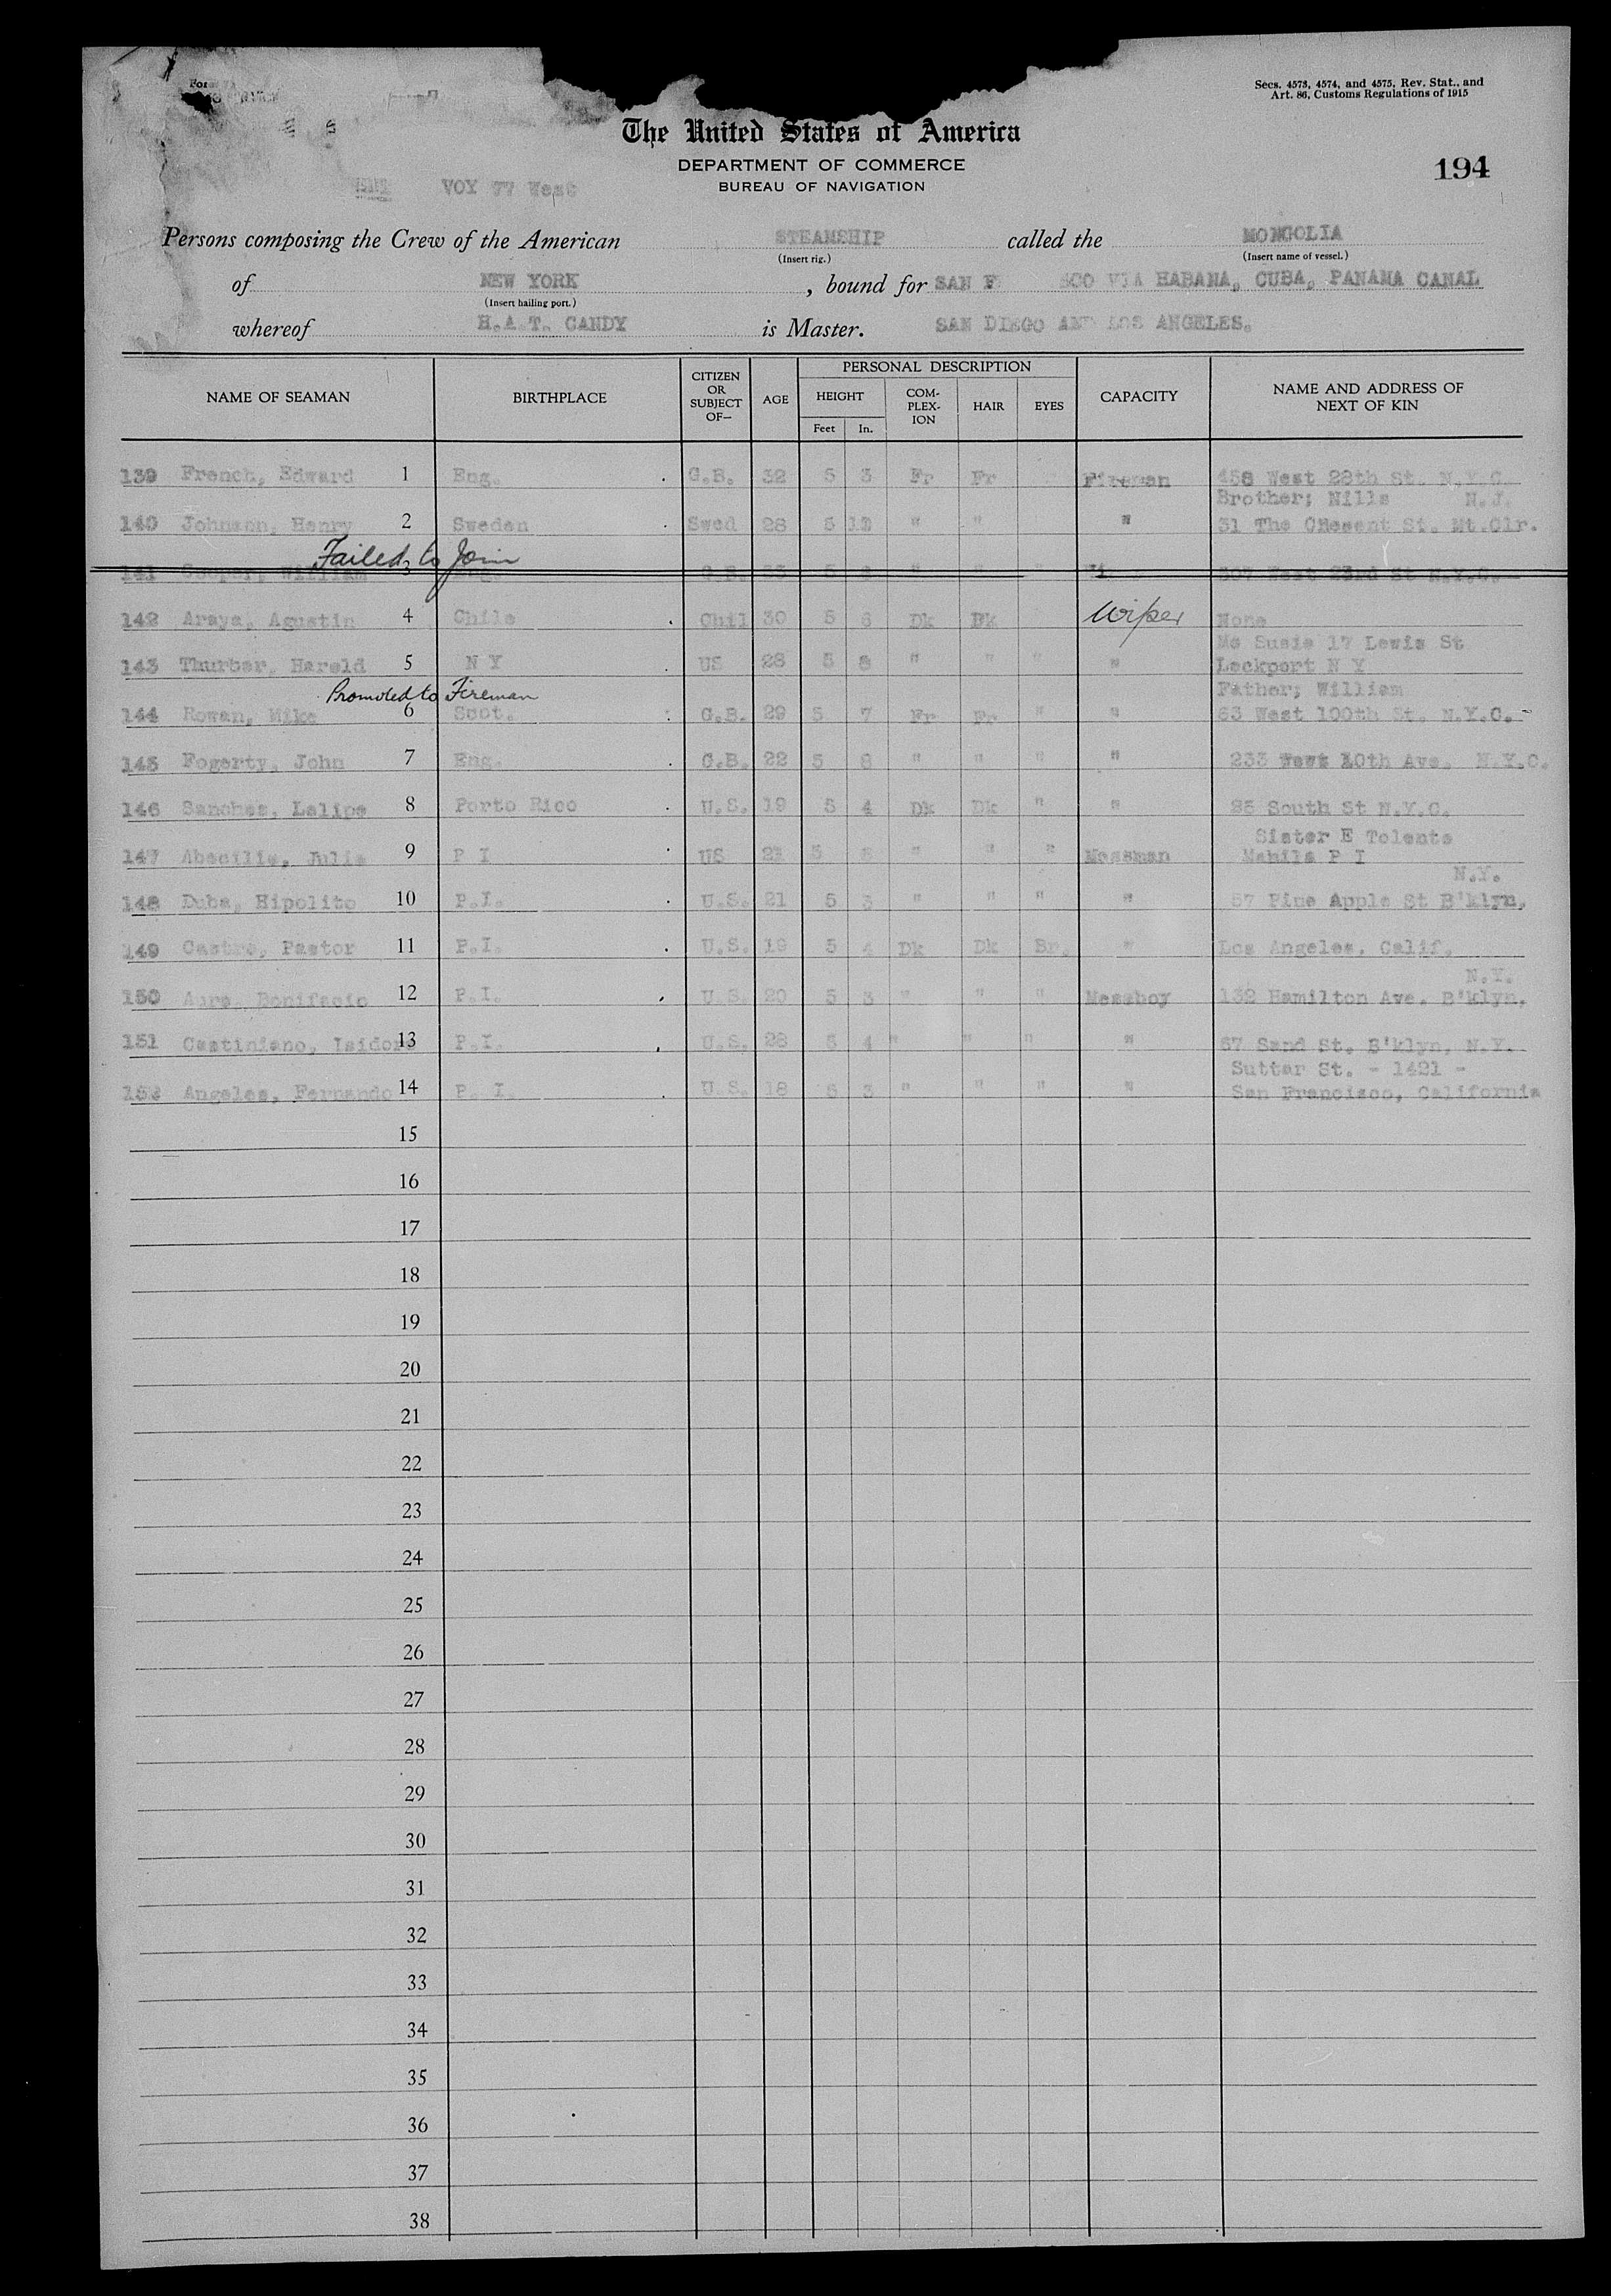 Secs. 4573, 4574, and 4575, Rev. Stat., and
Art. 86, Customs Regulations of 1915
The United States of America
DEPARTMENT OF COMMERCE
BUREAU OF NAVIGATION
194
VOY 77 West
Persons composing the Crew of the American STEAMSHIP called the MONGOLIA
(Insert rig.) (Insert name of vessel.)
of NEW YORK , bound for SAN F SCO VIA HABANA, CUBA, PANAMA CANAL
(Insert hailing port.)
whereof H.A.T. CANDY is Master. SAN DIEGO AND LOS ANGELES.
NAME OF SEAMAN BIRTHPLACE CITIZEN OR SUBJECT OF— AGE PERSONAL DESCRIPTION HEIGHT Feet In. COM-PLEX-ION HAIR EYES CAPACITY NAME AND ADDRESS OF NEXT OF KIN
139 French, Edward 1 Eng. G.B. 32 5 3 Fr Fr Fireman 458 West 28th St. N.Y.C.
Brother; Nills N.J.
140 Johnson, Henry 2 Sweden Swed 28 5 " " " 31 The Cresent St. Mt.Clr.
Failed to Join
141 Cooper, William 3 Eng. G.B. 5 " " " 307 West 23rd St N.Y.C.
142 Araya, Agustin 4 Chile Chil 30 5 6 Dk Bk Wiper None
Mo Susie 17 Lewis St
143 Thurber, Harold 5 N Y US 28 5 8 " " " " Lockport N Y
Promoted to Fireman
Father; William
144 Rowan, Mike 6 Scot. G.B. 29 5 7 Fr Fr " " 63 West 100th St. N.Y.C.
145 Fogerty, John 7 Eng. G.B. 22 5 8 " " " " 233 West 10th Ave. N.Y.C.
146 Sanches, Lalipe 8 Porto Rico U.S. 19 5 4 Dk Dk " " 25 South St N.Y.C.
Sister E Tolente
147 Abecilie, Julie 9 P I US 21 5 5 " " " Messman Manila P I
N.Y.
148 Duba, Hipolito 10 P.I. U.S. 21 5 3 " " " " 57 Pine Apple St B'klyn,
149 Castro, Pastor 11 P.I. U.S. 19 5 4 Dk Dk Br. " Los Angeles, Calif.
N.Y.
150 Aure, Bonifacio 12 P.I. U.S. 20 5 3 " " " Messboy 132 Hamilton Ave. B'klyn,
151 Castiniano, Isidore 13 P.I. U.S. 28 5 4 " " " " 67 Sand St. B'klyn, N.Y.
Suttar St. - 1421 -
152 Angeles, Fernando 14 P. I. U.S. 18 5 3 " " " " San Francisco, California
15
16
17
18
19
20
21
22
23
24
25
26
27
28
29
30
31
32
33
34
35
36
37
38